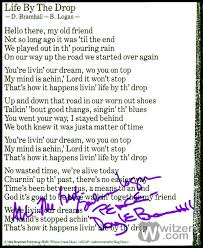 Life By The Drop
—D. Bramhall — B. Logan—
Hello there, my old friend
Not so long ago it was 'til the end
We played out in th' pouring rain
On our way up the road we started over again
You're livin' our dream, wo you on top
My mind is achin', Lord it won't stop
That's how it happens livin' life by the drop
Up and down that road in our worn out shoes
Talkin' 'bout good things, singin' th' blues
You went your way, I stayed behind
We both knew it was just matter of time
You're livin' our dream, wo you on top
My mind is achin', Lord it won't stop
That's how it happens livin' life by the drop
No wasted time, we're alive today
Churnin' up th' past, there's no
Time's been between us, a means to an end
God it's
You're livin' our dream
My mind's
That's how it happens livin' life by the drop
All The Best
Witzer
witzer.com